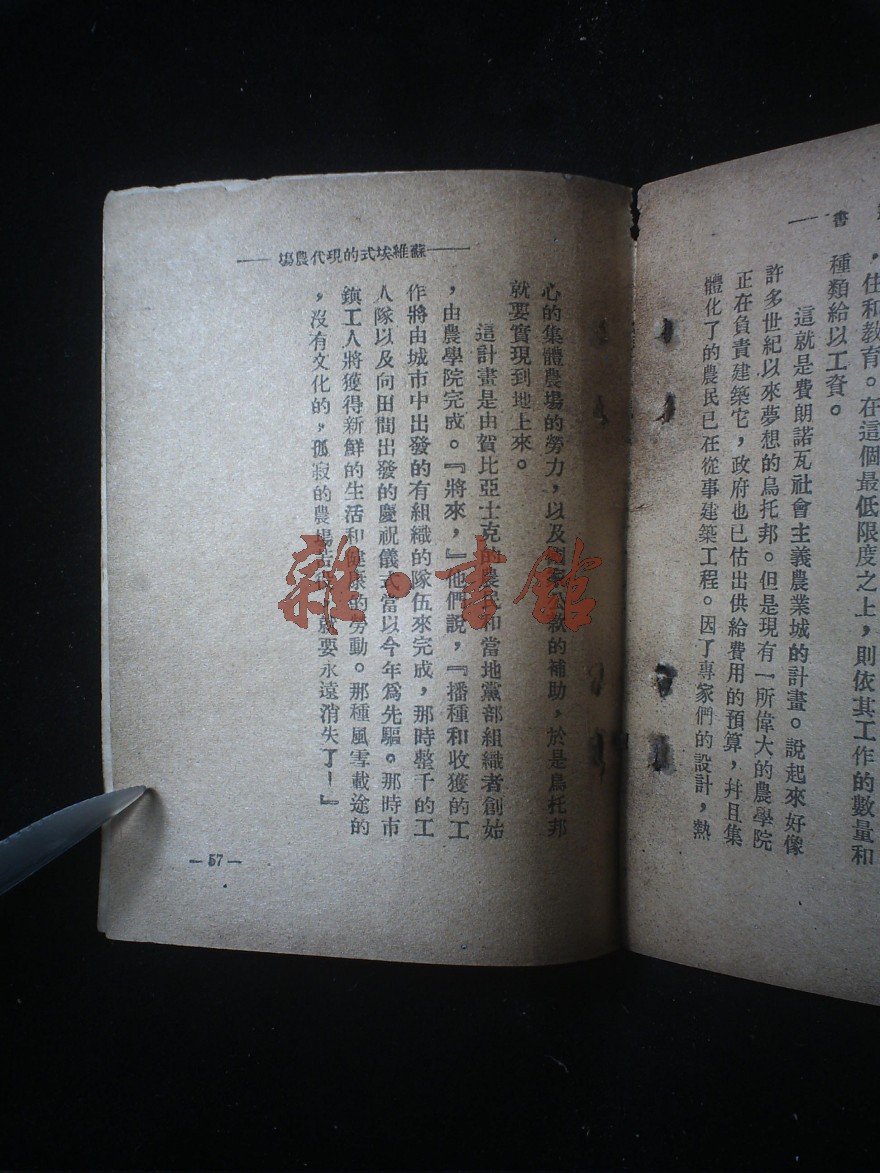 書
，住和教育。在這個最低限度之上，則依其工作的數量和
種類給以工資。
這就是費朗諾瓦社會主義農業城的計畫。說起來好像
許多世紀以來夢想的烏托邦。但是現有一所偉大的農學院
正在負責建築它，政府也已估出供給費用的預算，幷且集
體化了的農民已在從事建築工程。因了專家們的設計，熱
蘇維埃式的現代農場
心的集體農場的勞力，以及國家公款的補助，於是烏托邦
就要實現到地上來。
這計畫是由賀比亞士克的農民和當地黨部組織者創始
，由農學院完成。『將來，』他們說，『播種和收獲的工
作將由城市中出發的有組織的隊伍來完成，那時整千的工
人隊以及向田間出發的慶祝儀式當以今年爲先驅。那時市
鎮工人將獲得新鮮的生活和健康的勞動。那種風雪載途的
，沒有文化的，孤寂的農場 就要永遠消失了！』
— 57 —
雜·書館